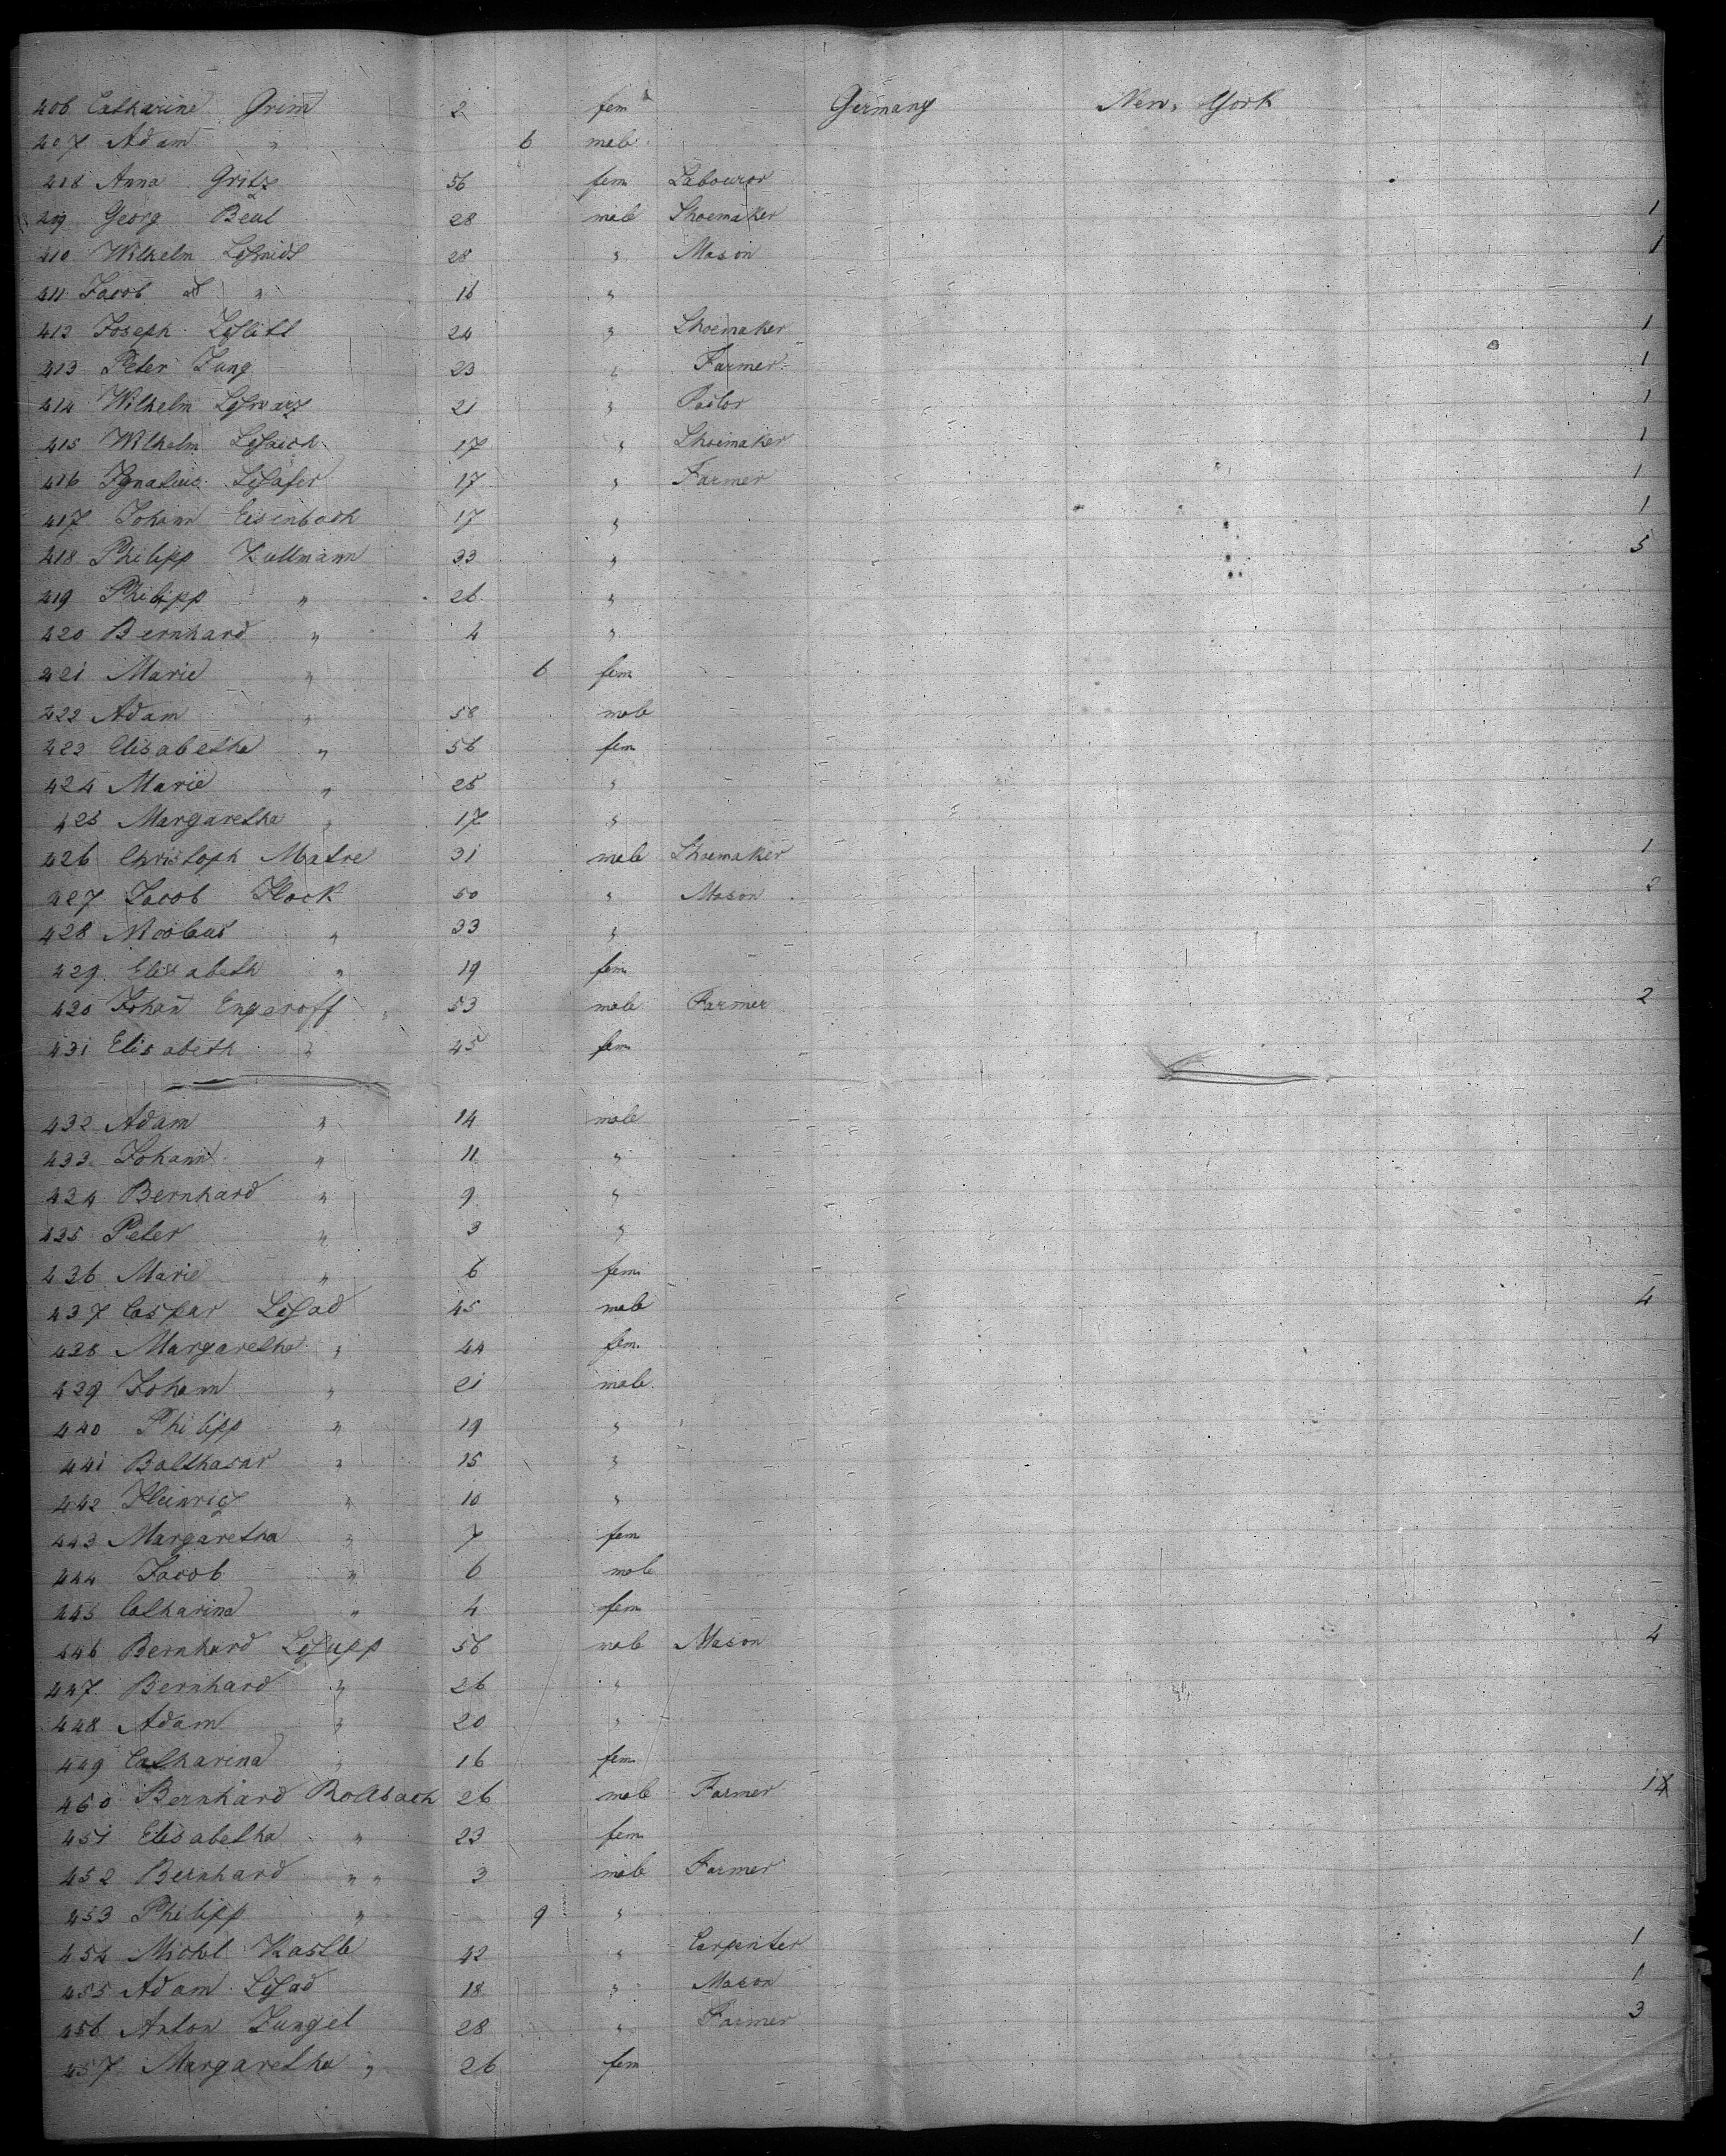 406 Catharine Grim 2 fem Germany New York
407 Adam " 6 male
408 Anna Gritz 56 fem Labouror
409 Georg Beul 28 male Shoemaker 1
410 Wilhelm Schmidt 28 " Mason 1
411 Jacob " 16 "
412 Joseph 24 " Shoemaker 1
413 Peter Jung 23 " Farmer 1
414 Wilhelm Schwarz 21 " 1
415 Wilhelm 17 " Shoemaker 1
416 Ignatius Schafer 17 " Farmer 1
417 Johann Eisenbach 17 " 1
418 Philipp Kullmann 33 " 5
419 Philipp " 26 "
420 Bernhard " 4 "
421 Marie " 6 fem
422 Adam " 58 male
423 Elisabetha " 56 fem
424 Marie " 25 "
425 Margaretha " 17 "
426 Christoph Matre 31 male Shoemaker 1
427 Jacob Hock 50 " Mason 2
428 " 33 "
429 Elisabeth " 19 fem
430 Johan Engeroff 53 male Farmer 2
431 Elisabeth " 45 fem
432 Adam " 14 male
433 Johann " 11 "
434 Bernhard " 9 "
435 Peter " 3 "
436 Marie " 6 fem
437 Caspar Schad 45 male 4
438 Margaretha " 44 fem
439 Johann " 21 male
440 Philipp " 19 "
441 Balthasar " 15 "
442 Heinrich " 10 "
443 Margaretha " 7 fem
444 Jacob " 6 male
445 Catharina " 4 fem
446 Bernhard Schupp 56 male Mason 4
447 Bernhard " 26 "
448 Adam " 20 "
449 Catharina " 16 fem
460 Bernhard Rollbach 26 male Farmer
451 Elisabetha " 23 fem
452 Bernhard " " 3 male Farmer
453 Philipp " 9 "
454 Michl Kastle 42 " Carpenter 1
455 Adam Schad 18 " Mason 1
456 Anton Jungel 28 " Farmer 3
457 Margaretha " 26 fem